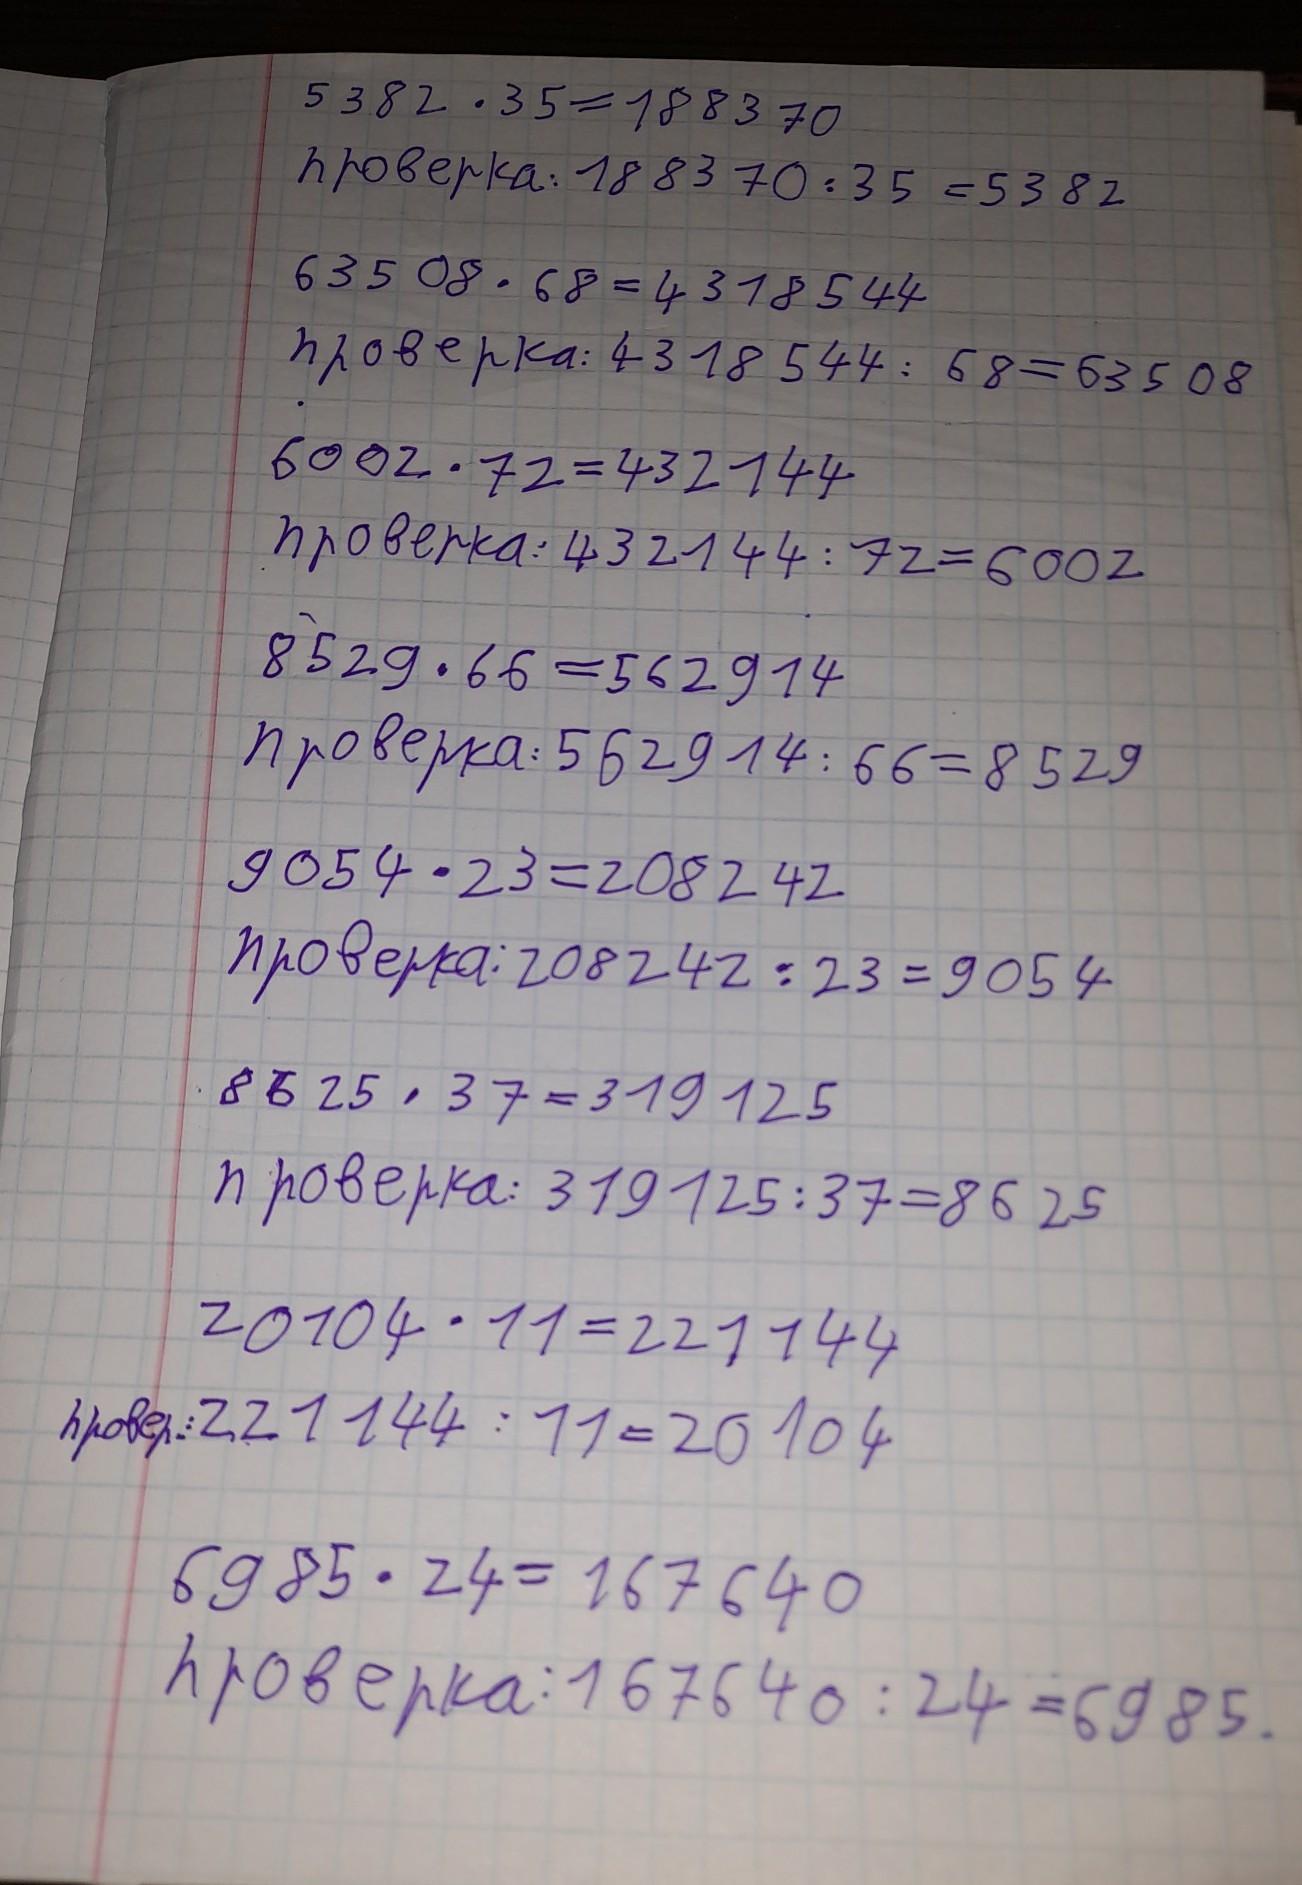 5382 · 35 = 188370
проверка: 188370 : 35 = 5382
63508 · 68 = 4318544
проверка: 4318544 : 68 = 63508
6002 · 72 = 432144
проверка: 432144 : 72 = 6002
8529 · 66 = 562914
проверка: 562914 : 66 = 8529
9054 · 23 = 208242
проверка: 208242 : 23 = 9054
8625 · 37 = 319125
проверка: 319125 : 37 = 8625
20104 · 11 = 221144
провер.: 221144 : 11 = 20104
6985 · 24 = 167640
проверка: 167640 : 24 = 6985.